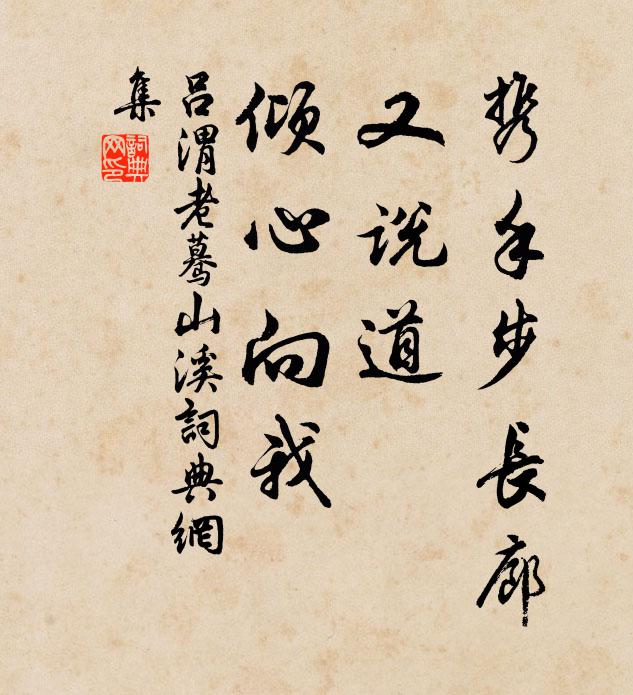 携手步長廊
又説道
傾心向我
吕渭老驀山溪詞典網
集
詞典
网印